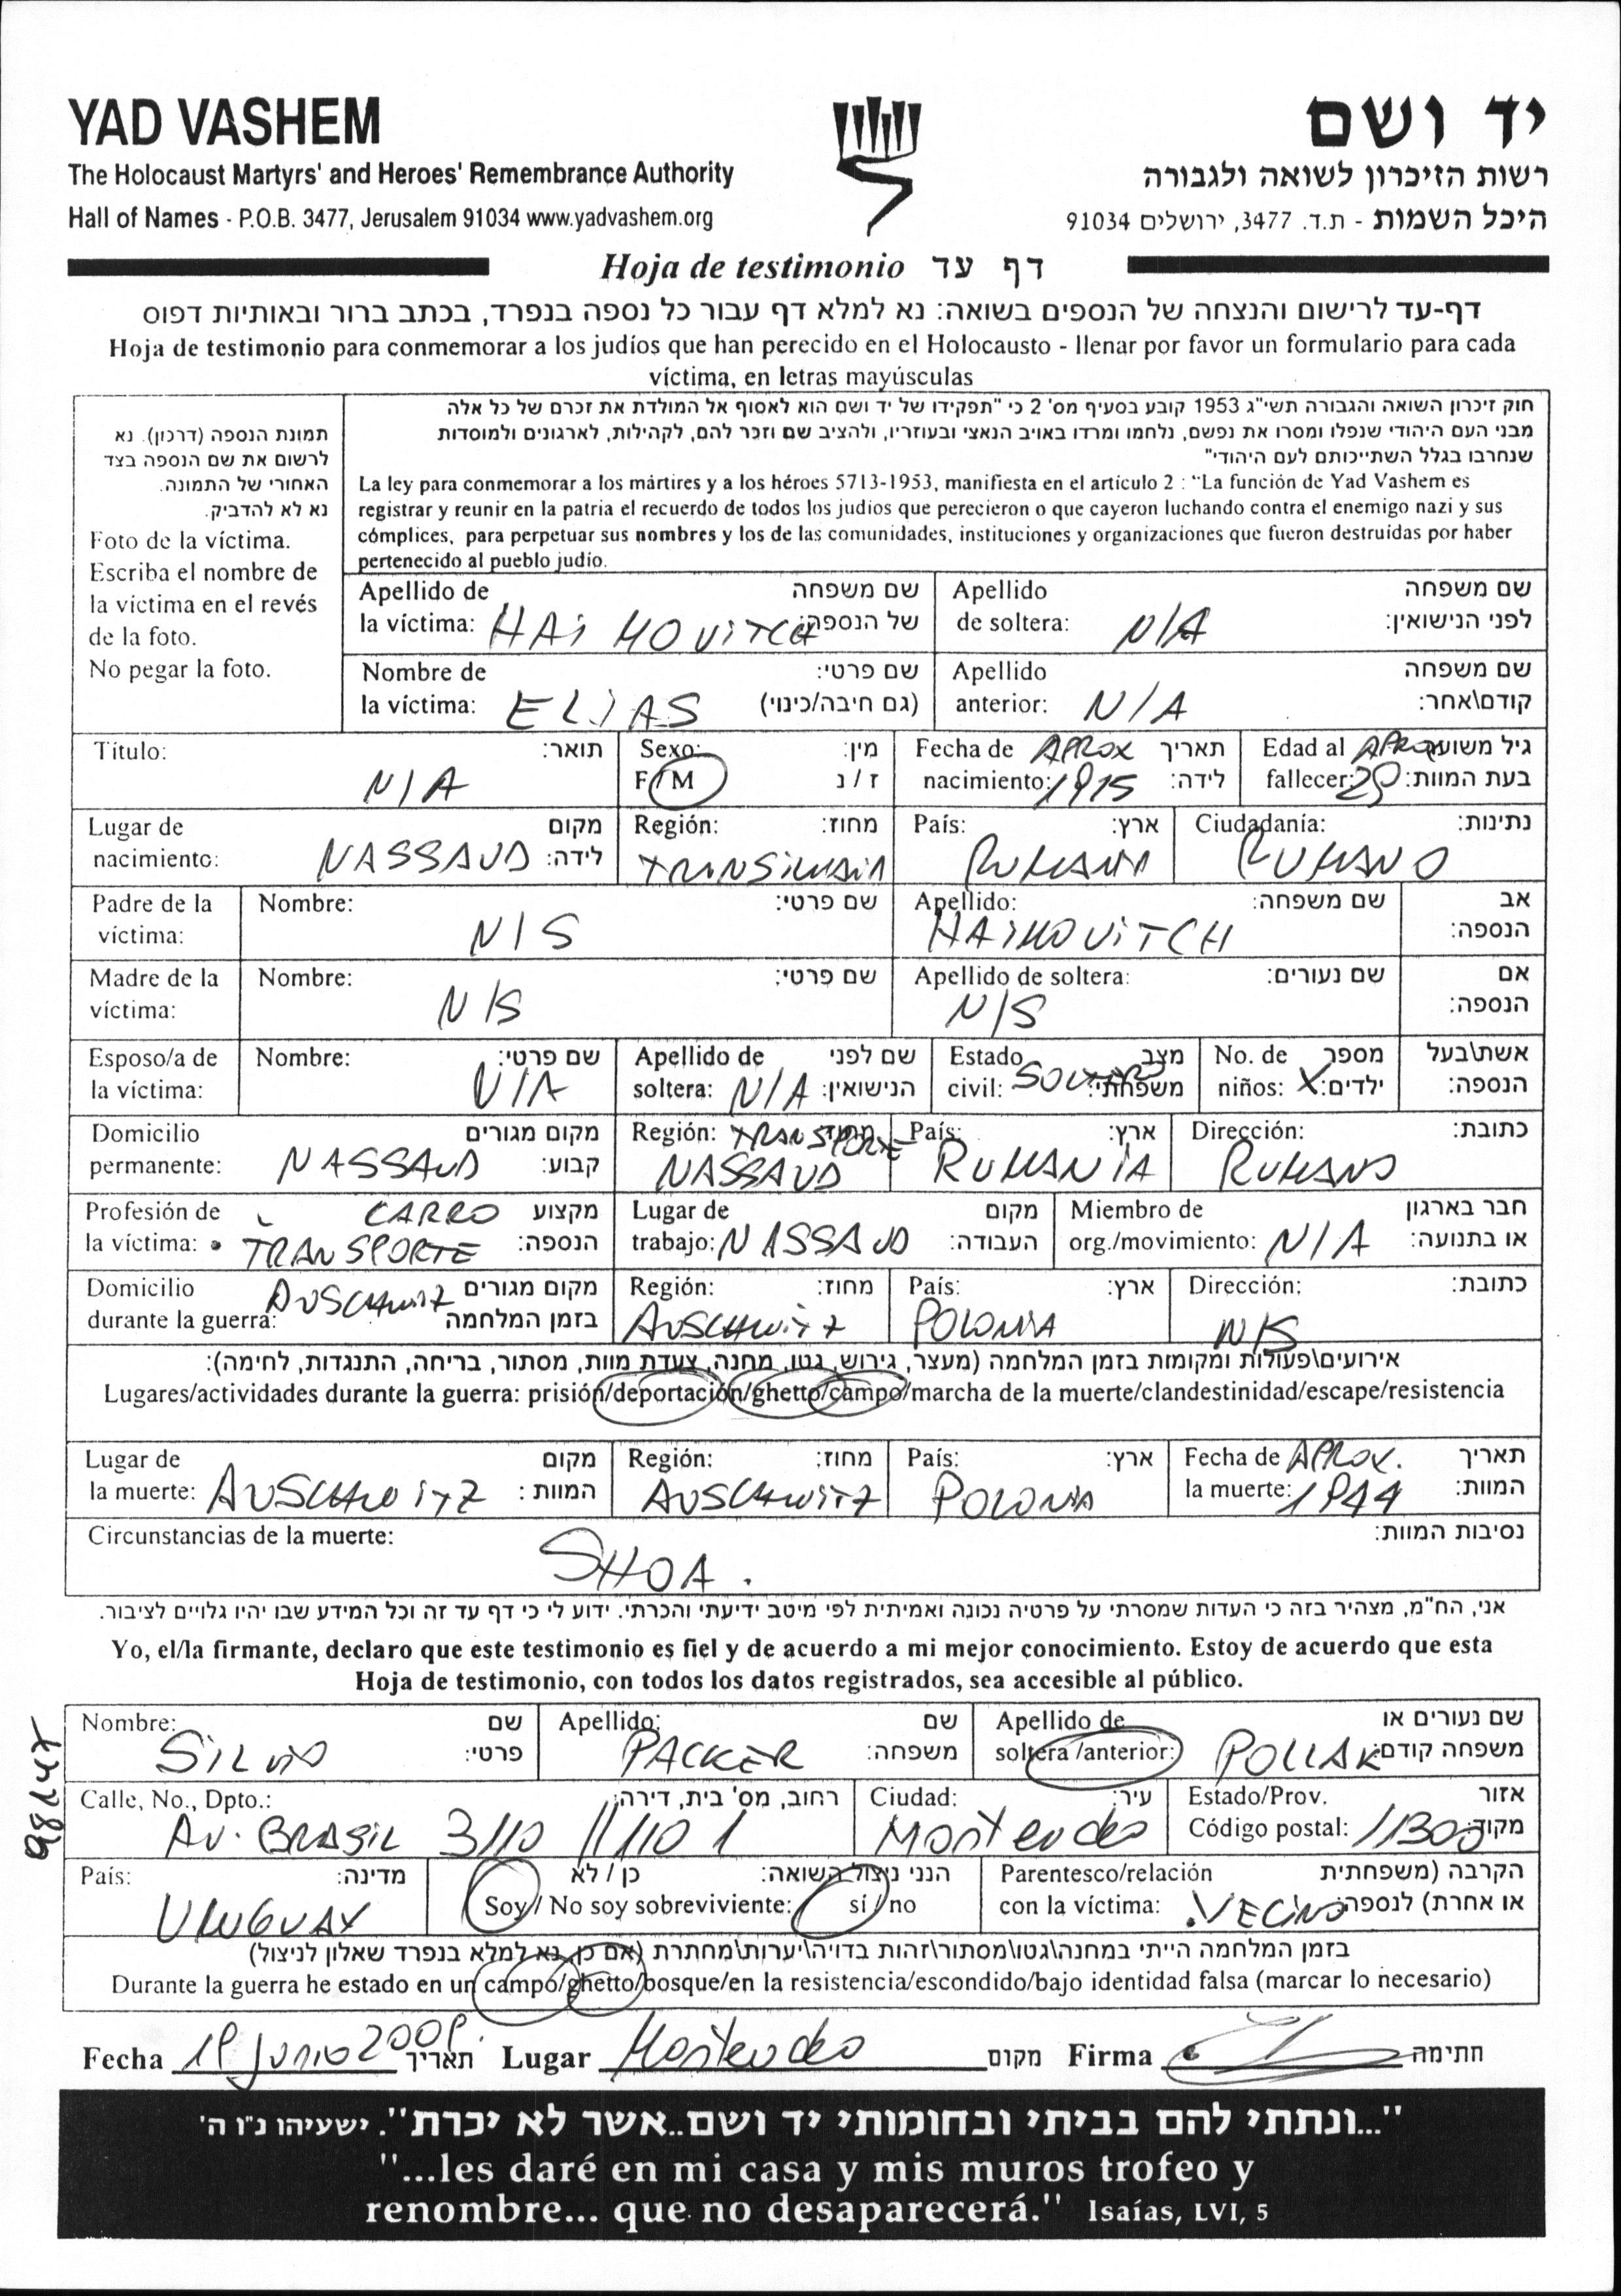 YAD VASHEM
The Holocaust Martyrs' and Heroes' Remembrance Authority
Hall of Names - P.O.B. 3477, Jerusalem 91034 www.yadvashem.org
יד ושם
רשות הזיכרון לשואה ולגבורה
היכל השמות - ת.ד. 3477, ירושלים 91034
Hoja de testimonio דף עד
דף-עד לרישום והנצחה של הנספים בשואה: נא למלא דף עבור כל נספה בנפרד, בכתב ברור ובאותיות דפוס
Hoja de testimonio para conmemorar a los judíos que han perecido en el Holocausto - llenar por favor un formulario para cada
víctima, en letras mayúsculas
תמונת הנספה (דרכון). נא
לרשום את שם הנספה בצד
האחורי של התמונה.
נא לא להדביק.
Foto de la víctima.
Escriba el nombre de
la victima en el revés
de la foto.
No pegar la foto.
חוק זיכרון השואה והגבורה תשי"ג 1953 קובע בסעיף מס' 2 כי "תפקידו של יד ושם הוא לאסוף אל המולדת את זכרם של כל אלה
מבני העם היהודי שנפלו ומסרו את נפשם, נלחמו ומרדו באויב הנאצי ובעוזריו, ולהציב שם וזכר להם, לקהילות, לארגונים ולמוסדות
שנחרבו בגלל השתייכותם לעם היהודי"
La ley para conmemorar a los mártires y a los héroes 5713-1953, manifiesta en el artículo 2 : "La función de Yad Vashem es
registrar y reunir en la patria el recuerdo de todos los judios que perecieron o que cayeron luchando contra el enemigo nazi y sus
cómplices, para perpetuar sus nombres y los de las comunidades, instituciones y organizaciones que fueron destruidas por haber
pertenecido al pueblo judío.
Apellido de la víctima: HAIMOVITCH שם משפחה של הנספה:
Apellido de soltera: N/A שם משפחה לפני הנישואין:
Nombre de la víctima: ELIAS שם פרטי: (גם חיבה/כינוי)
Apellido anterior: N/A שם משפחה קודם\אחר:
Título: N/A תואר:
Sexo: F/M מין: ז / נ
Fecha de nacimiento: APROX 1915 תאריך לידה:
Edad al fallecer: APROX 29 גיל משוער בעת המוות:
Lugar de nacimiento: NASSAUD מקום לידה:
Región: מחוז:
País: RUMANIA ארץ:
Ciudadanía: RUMANO נתינות:
Padre de la víctima: Nombre: N/S שם פרטי: Apellido: HAIMOVITCH שם משפחה: אב הנספה:
Madre de la víctima: Nombre: N/S שם פרטי: Apellido de soltera: N/S שם נעורים: אם הנספה:
Esposo/a de la víctima: Nombre: N/A שם פרטי: Apellido de soltera: N/A שם לפני הנישואין: Estado civil: SOLTERO מצב משפחתי: No. de niños: X מספר ילדים: אשת\בעל הנספה:
Domicilio permanente: NASSAUD מקום מגורים קבוע:
Región: TRANSPORTE NASSAUD מחוז:
País: RUMANIA ארץ:
Dirección: RUMANO כתובת:
Profesión de la víctima: CARRO TRANSPORTE מקצוע הנספה:
Lugar de trabajo: NASSAUD מקום העבודה:
Miembro de org./movimiento: N/A חבר בארגון או בתנועה:
Domicilio durante la guerra: AUSCHWITZ מקום מגורים בזמן המלחמה
Región: AUSCHWITZ מחוז:
País: POLONIA ארץ:
Dirección: N/S כתובת:
אירועים\פעולות ומקומות בזמן המלחמה (מעצר, גירוש, גטו, מחנה, צעדת מוות, מסתור, בריחה, התנגדות, לחימה):
Lugares/actividades durante la guerra: prisión/deportación/ghetto/campo/marcha de la muerte/clandestinidad/escape/resistencia
Lugar de la muerte: AUSCHWITZ מקום המוות:
Región: AUSCHWITZ מחוז:
País: POLONIA ארץ:
Fecha de la muerte: APROX. 1944 תאריך המוות:
Circunstancias de la muerte: SHOA. נסיבות המוות:
אני, הח"מ, מצהיר בזה כי העדות שמסרתי על פרטיה נכונה ואמיתית לפי מיטב ידיעתי והכרתי. ידוע לי כי דף עד זה וכל המידע שבו יהיו גלויים לציבור.
Yo, el/la firmante, declaro que este testimonio es fiel y de acuerdo a mi mejor conocimiento. Estoy de acuerdo que esta
Hoja de testimonio, con todos los datos registrados, sea accesible al público.
Nombre: SILVIO שם פרטי:
Apellido: PACKER שם משפחה:
Apellido de soltera /anterior: POLLAK שם נעורים או משפחה קודם:
Calle, No., Dpto.: AV. BRASIL 3110 //1101 רחוב, מס' בית, דירה:
Ciudad: Montevideo עיר:
Estado/Prov. Código postal: 11300 אזור מקוד
País: URUGUAY מדינה:
Soy / No soy sobreviviente: sí / no הנני ניצול השואה: כן / לא
Parentesco/relación con la víctima: VECINO הקרבה (משפחתית או אחרת) לנספה:
בזמן המלחמה הייתי במחנה\גטו\מסתור\זהות בדויה\יערות\מחתרת (אם כן, נא למלא בנפרד שאלון לניצול)
Durante la guerra he estado en un campo/ghetto/bosque/en la resistencia/escondido/bajo identidad falsa (marcar lo necesario)
Fecha 19 JUNIO 2009. תאריך Lugar Montevideo מקום Firma חתימה
"...ונתתי להם בביתי ובחומותי יד ושם..אשר לא יכרת". ישעיהו נ"ו ה'
"...les daré en mi casa y mis muros trofeo y
renombre... que no desaparecerá." Isaías, LVI, 5